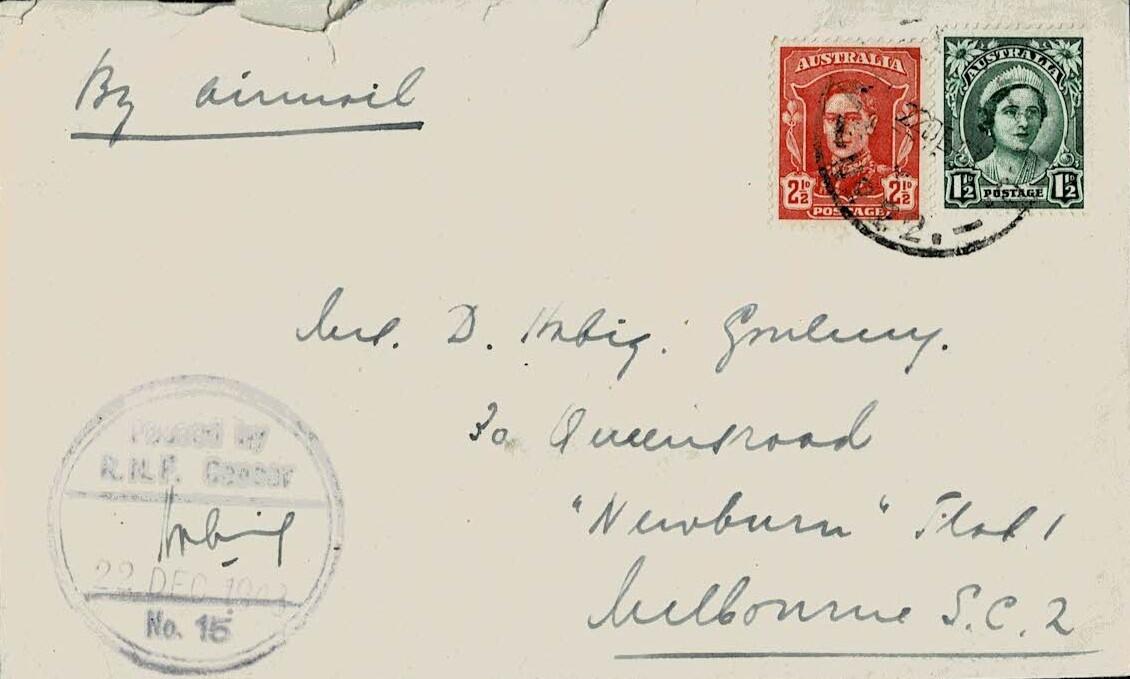 By airmail
AUSTRALIA
2½D 2½D
POSTAGE
AUSTRALIA
1½D POSTAGE 1½D
D.
30 Queensroad
"Newburn" Flat 1
Melbourne S.C. 2
Passed by
R.N.F. Censor
22 DEC
No. 15